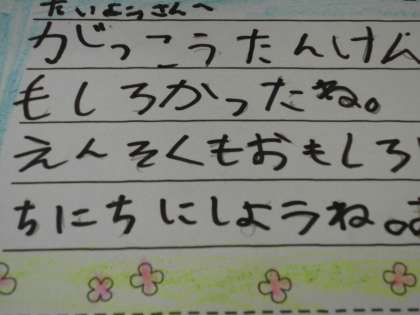 たいようさんへ
がっこうたんけん
もしろかったね。
えんそくもおもしろ
ちにちにしようね。